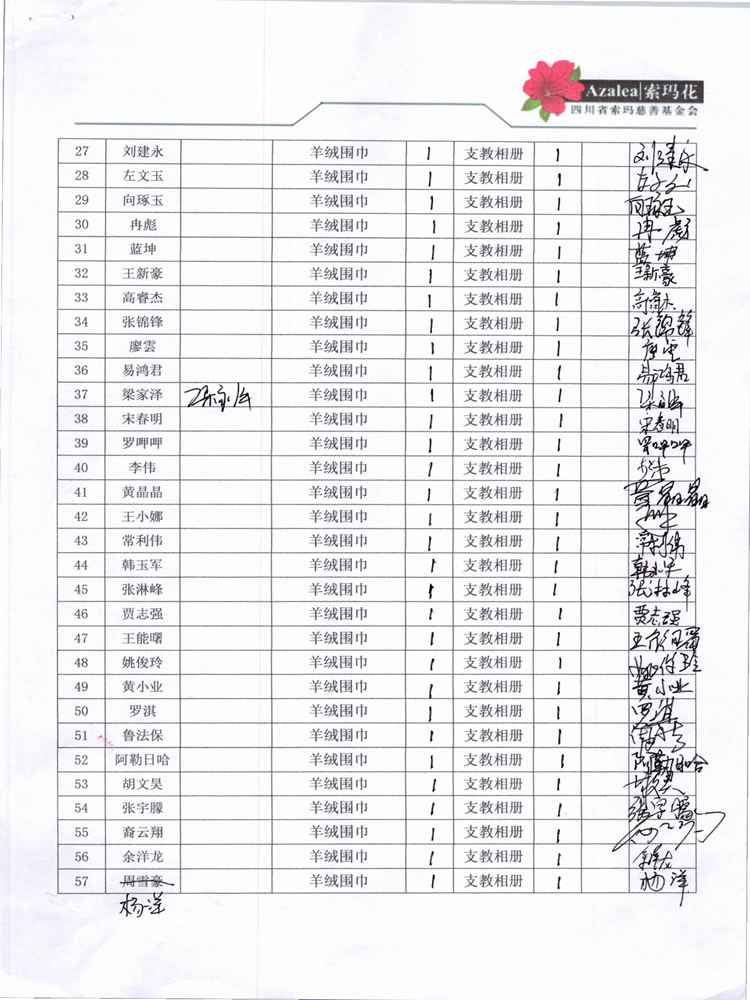 Azalea|索玛花
四川省索玛慈善基金会
27 刘建永 羊绒围巾 1 支教相册 1 刘建永
28 左文玉 羊绒围巾 1 支教相册 1
29 向琢玉 羊绒围巾 1 支教相册 1 向琢玉
30 冉彪 羊绒围巾 1 支教相册 1 冉彪
31 蓝坤 羊绒围巾 1 支教相册 1 蓝坤
32 王新豪 羊绒围巾 1 支教相册 1 王新豪
33 高睿杰 羊绒围巾 1 支教相册 1
34 张锦锋 羊绒围巾 1 支教相册 1 张锦锋
35 廖雲 羊绒围巾 1 支教相册 1
36 易鸿君 羊绒围巾 1 支教相册 1 易鸿君
37 梁家泽 羊绒围巾 1 支教相册 1
38 宋春明 羊绒围巾 1 支教相册 1 宋春明
39 罗呷呷 羊绒围巾 1 支教相册 1 罗呷呷
40 李伟 羊绒围巾 1 支教相册 1
41 黄晶晶 羊绒围巾 1 支教相册 1 黄晶晶
42 王小娜 羊绒围巾 1 支教相册 1
43 常利伟 羊绒围巾 1 支教相册 1
44 韩玉军 羊绒围巾 1 支教相册 1 韩玉军
45 张淋峰 羊绒围巾 1 支教相册 1 张淋峰
46 贾志强 羊绒围巾 1 支教相册 1 贾志强
47 王能曙 羊绒围巾 1 支教相册 1 王能曙
48 姚俊玲 羊绒围巾 1 支教相册 1 姚俊玲
49 黄小业 羊绒围巾 1 支教相册 1 黄小业
50 罗淇 羊绒围巾 1 支教相册 1 罗淇
51 鲁法保 羊绒围巾 1 支教相册 1
52 阿勒日哈 羊绒围巾 1 支教相册 1 阿勒日哈
53 胡文昊 羊绒围巾 1 支教相册 1
54 张宇朦 羊绒围巾 1 支教相册 1 张宇朦
55 裔云翔 羊绒围巾 1 支教相册 1
56 余洋龙 羊绒围巾 1 支教相册 1
57 周雪豪 羊绒围巾 1 支教相册 1 杨洋
杨洋